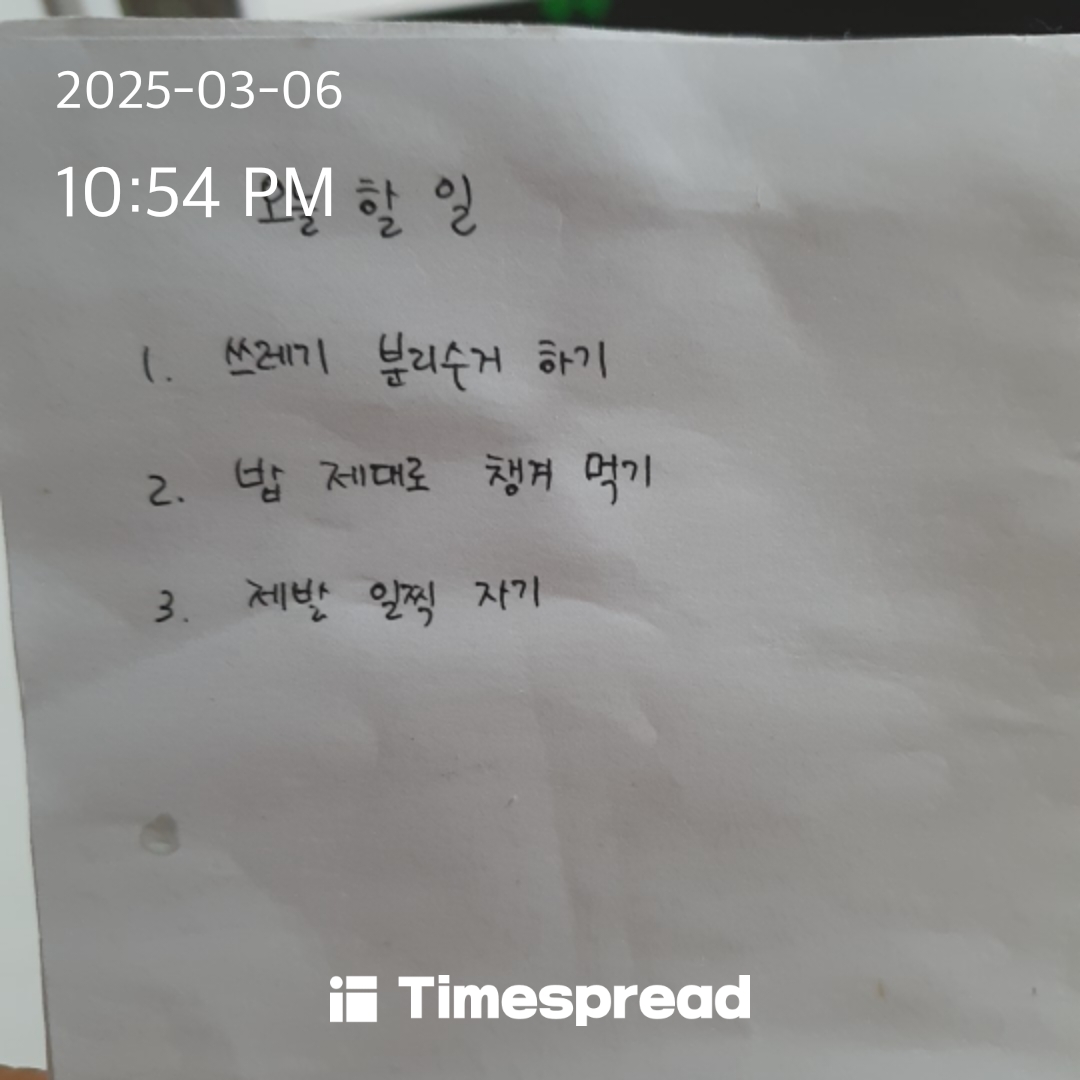 2025-03-06
10:54 PM
오늘 할 일
1. 쓰레기 분리수거 하기
2. 밥 제대로 챙겨 먹기
3. 제발 일찍 자기
Timespread